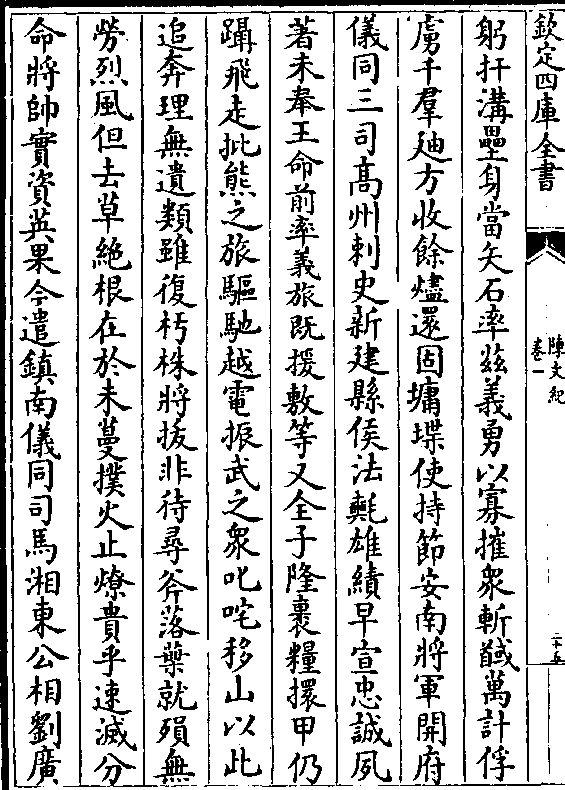 欽定四庫全書
陳文紀
卷一
二十五
躬扞溝壘身當矢石率茲義勇以寡摧衆斬馘萬計俘
虜千羣廸方收餘燼還固墉堞使持節安南將軍開府
儀同三司髙州刺史新建縣侯法𣰰雄績早宣忠誠夙
著未奉王命前率義旅旣援敷等又全子隆裹糧擐甲仍
躡飛走批熊之旅驅馳越電振武之衆叱咤移山以此
追奔理無遺類雖復朽株將拔非待尋斧落藥就殞無
勞烈風但去草絶根在於未蔓撲火止燎貴乎速滅分
命將帥實資英果今遣鎮南儀同司馬湘東公相劉廣